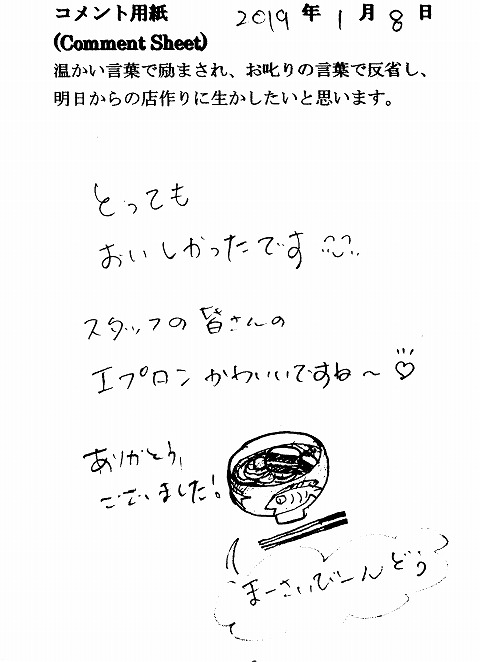 コメント用紙 2019年1月8日
(Comment Sheet)
温かい言葉で励まされ、お叱りの言葉で反省し、
明日からの店作りに生かしたいと思います。
とっても
おいしかったです
スタッフの皆さんの
エプロンかわいいですね～
ありがとう
ございました!
まーさいびーんどう